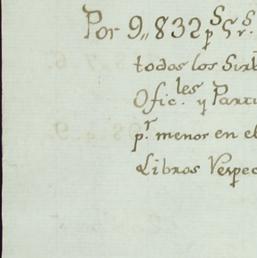 Por 9,,832 p.s 5 r.s
todos los Sir
Ofic.les y Parti
p.r menor en el
Libros Respec